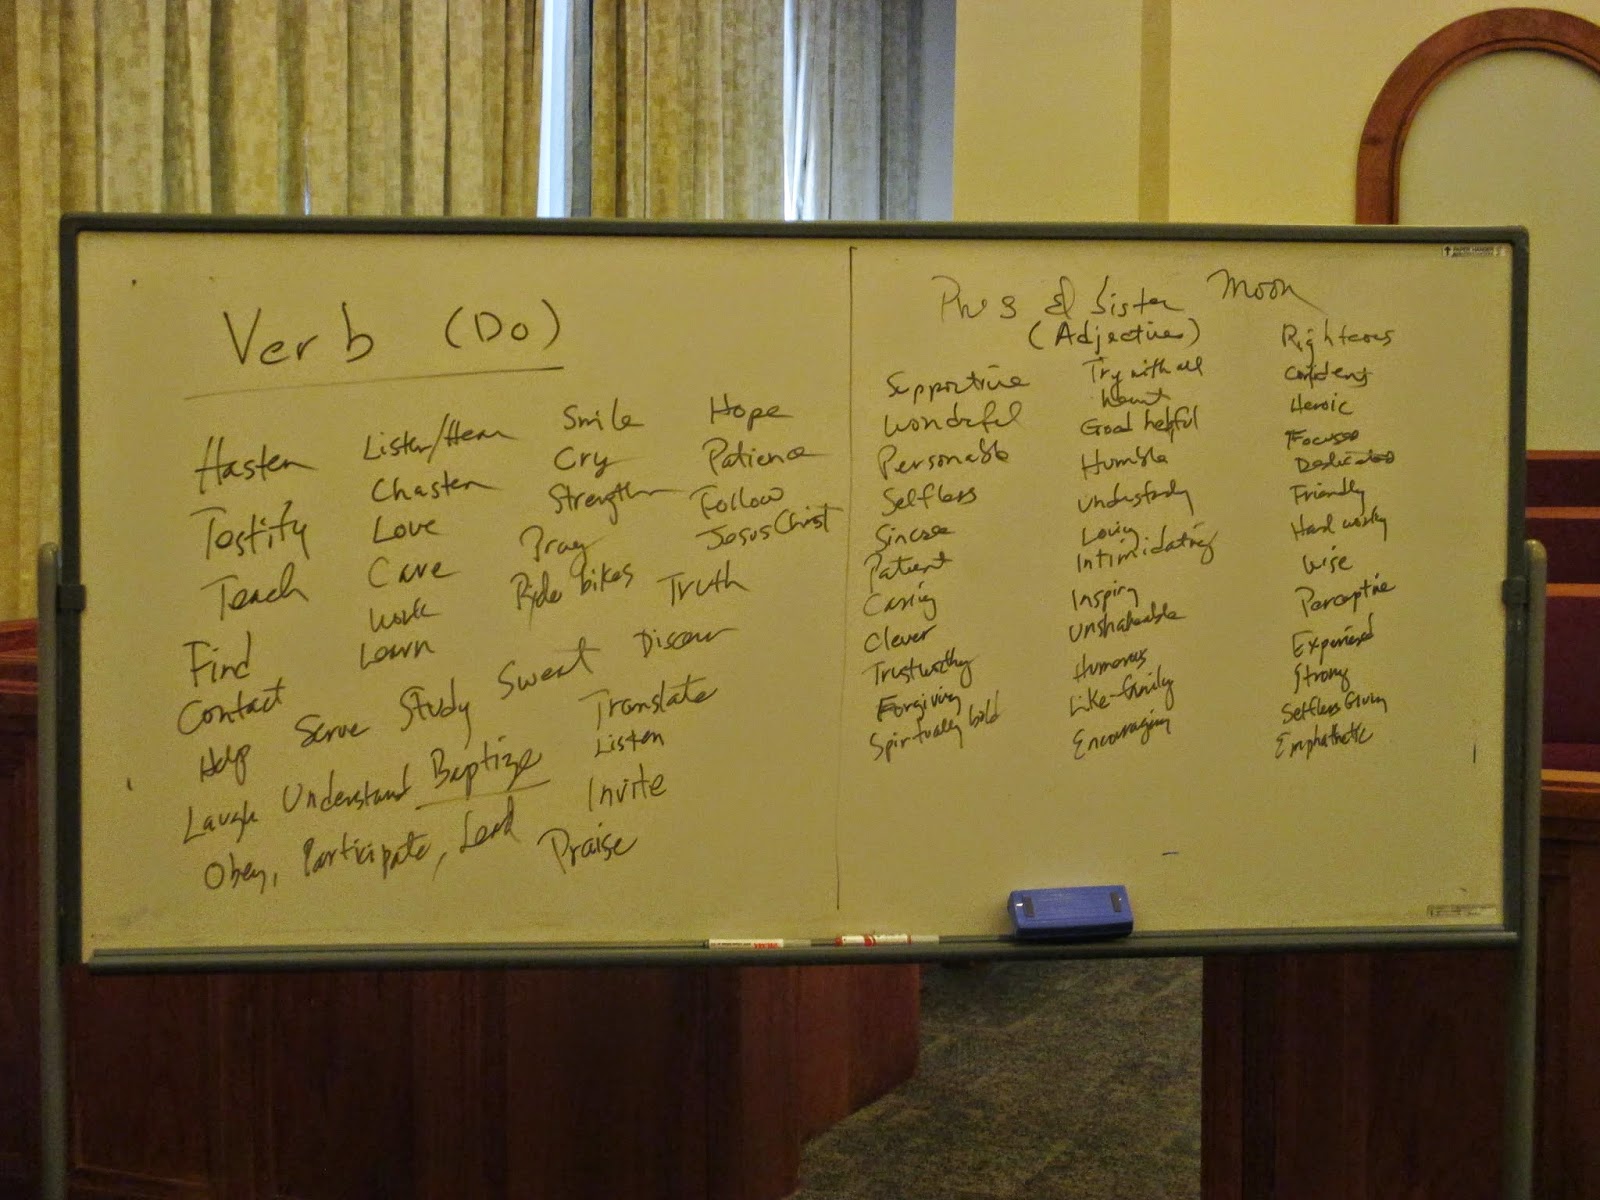 Verb (Do)
Hasten
Testify
Teach
Find
Contact
Help
Laugh
Listen/Hear
Chasten
Love
Care
Work
Learn
Serve
Study
Sweat
Understand
Baptize
Obey, Participate, Lead
Smile
Cry
Strengthen
Pray
Ride bikes
Hope
Patience
Follow
Jesus Christ
Truth
Discern
Translate
Listen
Invite
Praise
& Sister Moon
(Adjectives)
Supportive
Wonderful
Personable
Selfless
Sincere
Patient
Caring
Clever
Trustworthy
Forgiving
Spiritually bold
Try with all
heart
Good helpful
Humble
Understandy
Loving
Intimidating
Inspiring
Unshakeable
Humorous
Like-family
Encouraging
Righteous
Confident
Heroic
Focused
Dedicated
Friendly
Hard worky
Wise
Perceptive
Experienced
Strong
Selfless Giving
Emphathetic